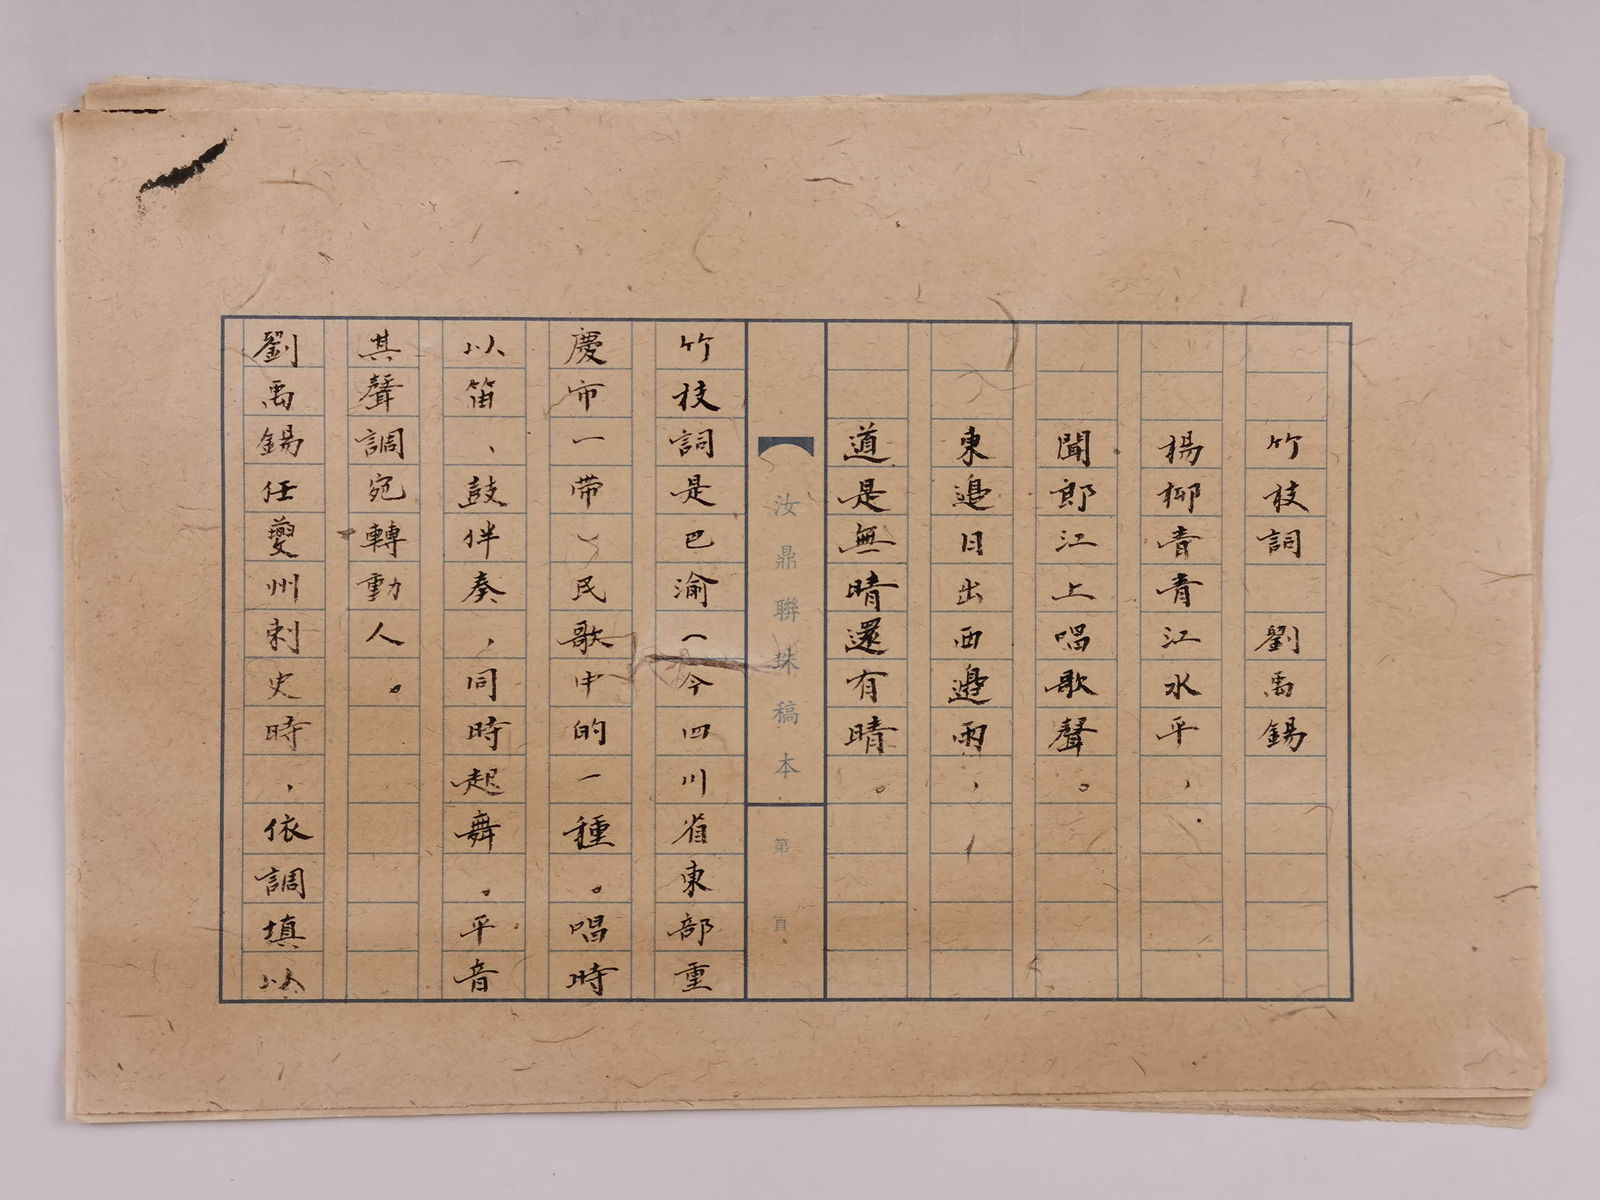 竹枝詞 劉禹錫
楊柳青青江水平，
聞郎江上唱歌聲。
東邉日出西邉雨，
道是無晴還有晴。
汝鼎聯珠稿本
第 頁
竹枝詞是巴渝（今四川省東部重
慶市一帶）民歌中的一種。唱時
以笛、鼓伴奏，同時起舞。平音
其聲調宛轉動人。
劉禹錫任夔州刺史時，依調填以